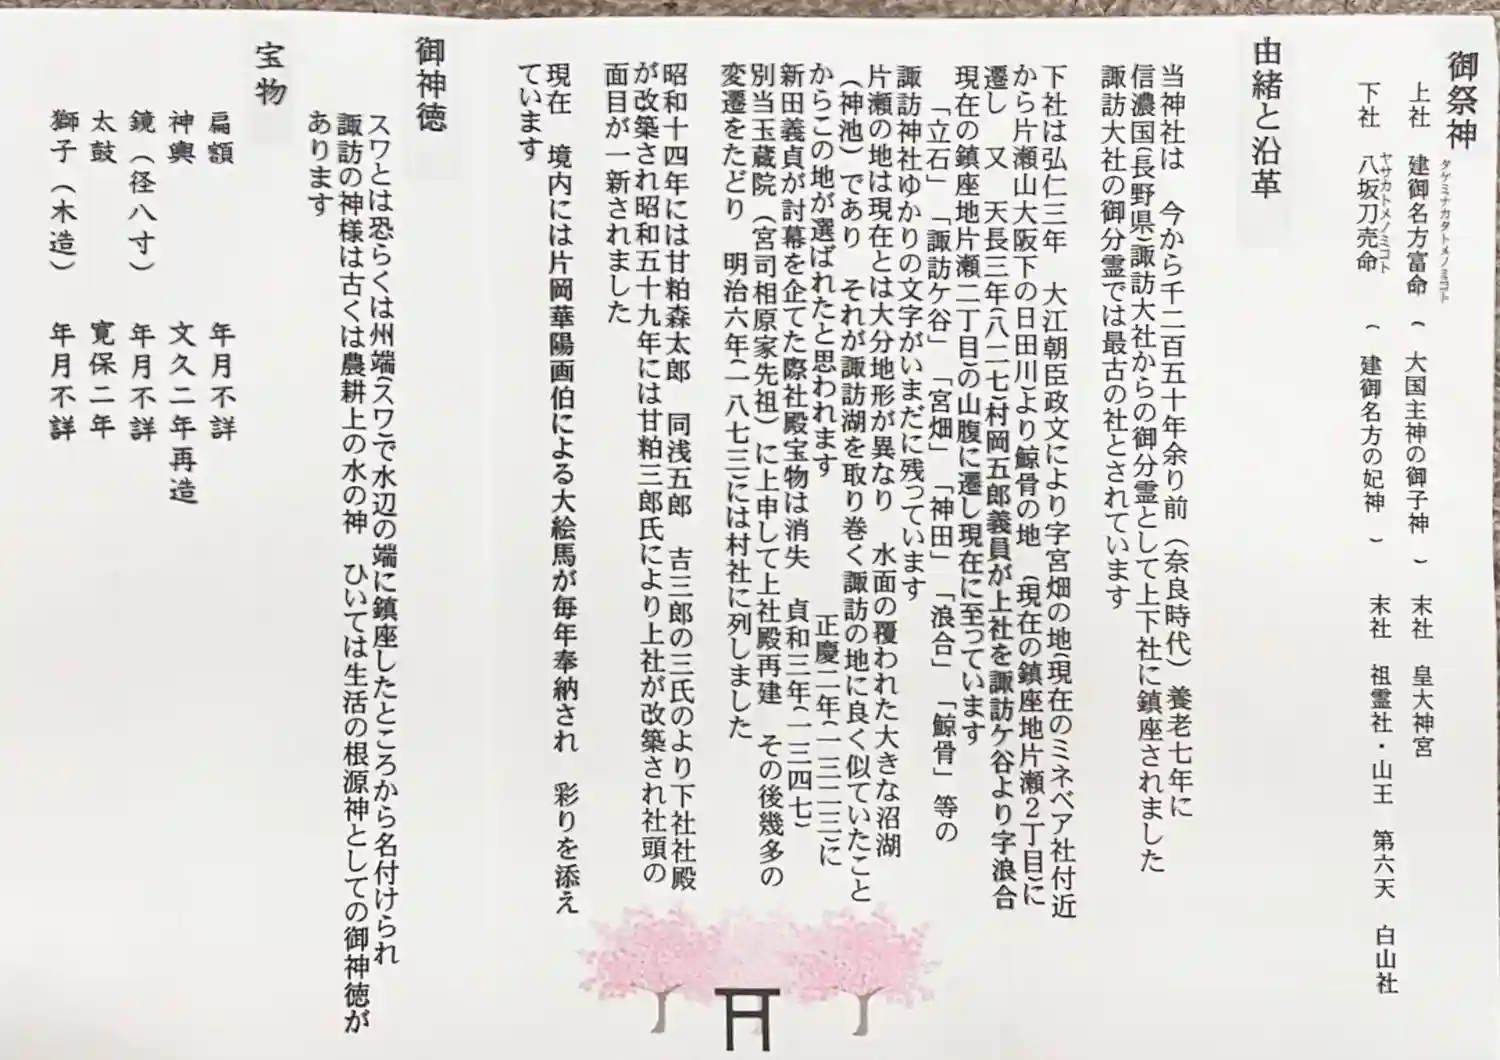 御祭神
上社 建御名方富命 ( 大国主神の御子神 ) 末社 皇大神宮
タケミナカタトメノミコト
下社 八坂刀売命 ( 建御名方の妃神 ) 末社 祖霊社・山王 第六天 白山社
ヤサカトメノミコト
由緒と沿革
当神社は 今から千二百五十年余り前(奈良時代)養老七年に
信濃国(長野県)諏訪大社からの御分霊として上下社に鎮座されました
諏訪大社の御分霊では最古の社とされています
下社は弘仁三年 大江朝臣政文により字宮畑の地(現在のミネベア社付近
から片瀬山大阪下の日田川)より鯨骨の地 (現在の鎮座地片瀬2丁目)に
遷し 又 天長三年(八二七)村岡五郎義員が上社を諏訪ケ谷より字浪合
現在の鎮座地片瀬二丁目)の山腹に遷し現在に至っています
「立石」「諏訪ケ谷」「宮畑」「神田」「浪合」「鯨骨」等の
諏訪神社ゆかりの文字がいまだに残っています
片瀬の地は現在とは大分地形が異なり 水面の覆われた大きな沼湖
(神池)であり それが諏訪湖を取り巻く諏訪の地に良く似ていたこと
からこの地が選ばれたと思われます 正慶二年(一三二三)に
新田義貞が討幕を企てた際社殿宝物は消失 貞和三年(一三四七)
別当玉蔵院(宮司相原家先祖)に上申して上社殿再建 その後幾多の
変遷をたどり 明治六年(一八七三)には村社に列しました
昭和十四年には甘粕森太郎 同浅五郎 吉三郎の三氏のより下社社殿
が改築され昭和五十九年には甘粕三郎氏により上社が改築され社頭の
面目が一新されました
現在 境内には片岡華陽画伯による大絵馬が毎年奉納され 彩りを添え
ています
御神徳
スワとは恐らくは州端(スワ)で水辺の端に鎮座したところから名付けられ
諏訪の神様は古くは農耕上の水の神 ひいては生活の根源神としての御神徳が
あります
宝物
扁額 年月不詳
神輿 文久二年再造
鏡(径八寸) 年月不詳
太鼓 寛保二年
獅子(木造) 年月不詳